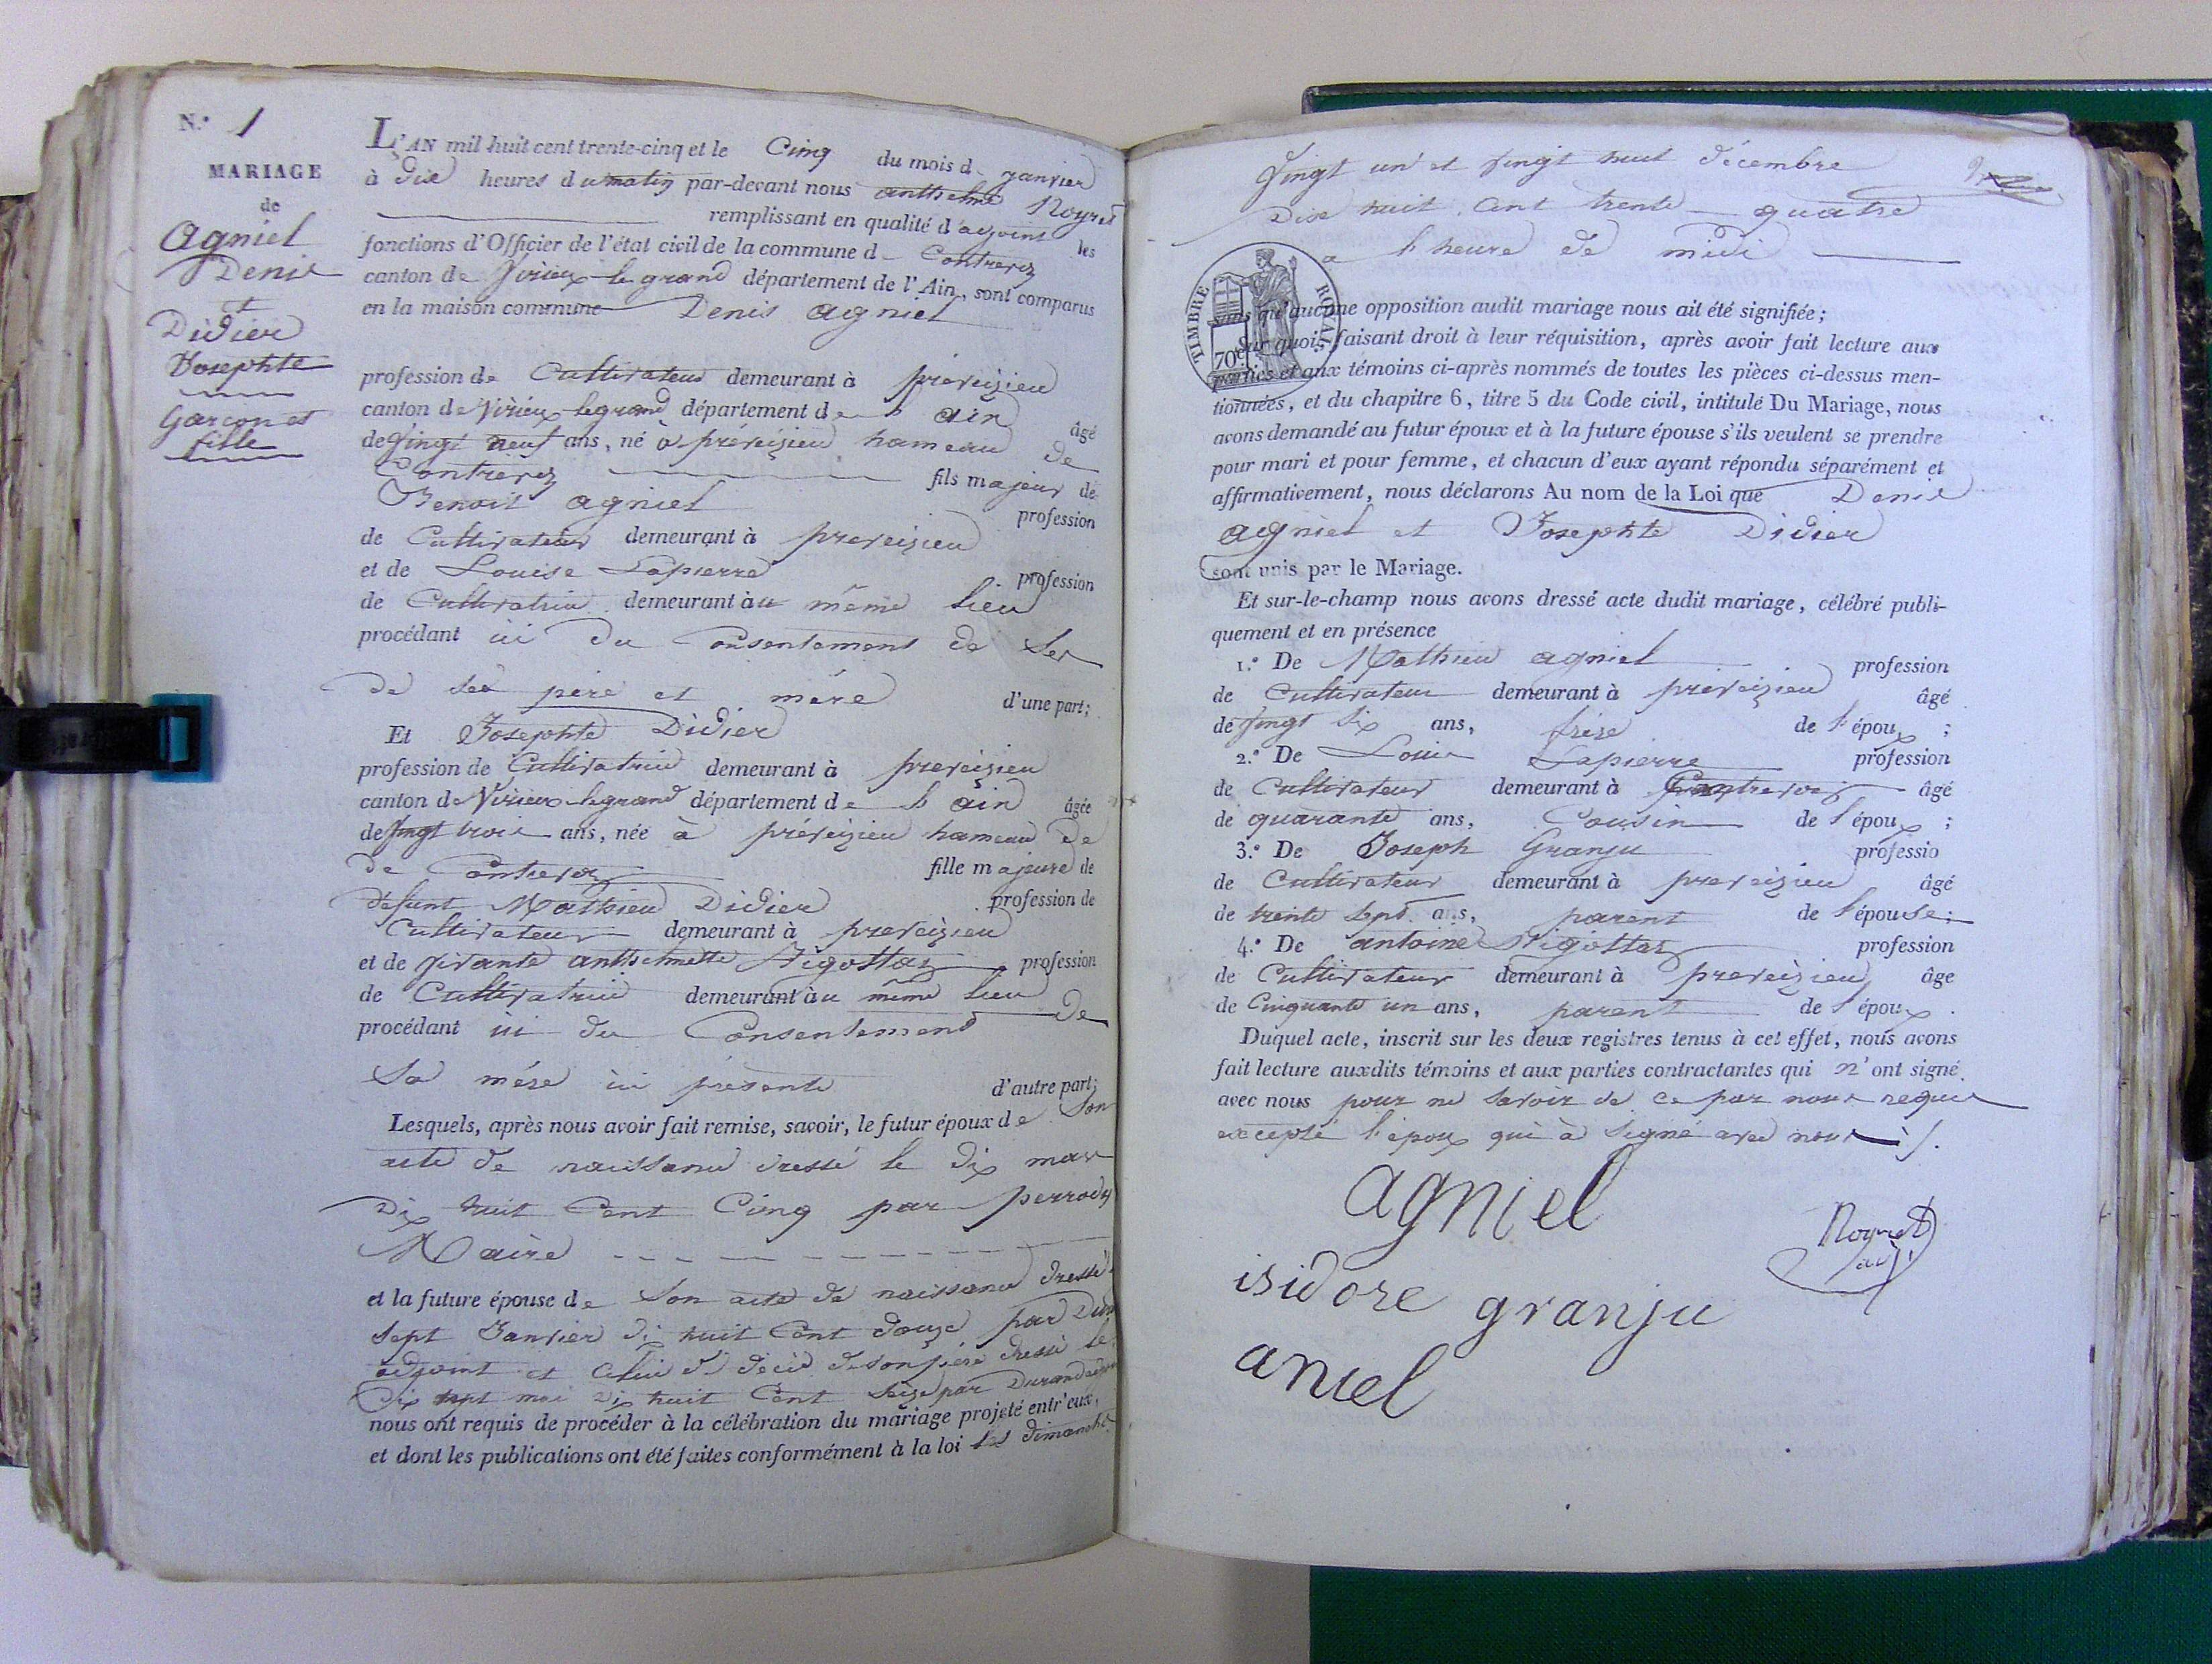 N.° 1
MARIAGE
de
Agniel
Denis
et
Didier
Josephte
Garçon et
fille
L'AN mil huit cent trente-cinq et le Cinq du mois d. janvier
à Dixe heures du matin par-devant nous anthelme Noyret
remplissant en qualité d'adjoint les
fonctions d'Officier de l'état civil de la commune d. Contrevoz
canton de Virieux le grand département de l'Ain, sont comparus
en la maison commune Denis agniel
profession de Cultivateur demeurant à preveizieu
canton de Virieux legrand département de l'ain âgé
de vingt neuf ans, né à préveizieu hameau de
Contrevoz fils majeur de
Benoit agniel profession
de Cultivateur demeurant à preveizieu
et de Louise Lapierre profession
de Cultivatrice demeurant au même lieu
procédant ici du Consentement de ses
de ses père et mère d'une part;
Et Josephte Didier
profession de Cultivatrice demeurant à preveizieu
canton de Virieux legrand département de l'ain âgée
de vingt trois ans, née à préveizieu hameau de
de Contrevoz fille majeure de
défunt Mathieu Didier profession de
Cultivateur demeurant à preveizieu
et de vivante anthelmette Rigottaz profession
de Cultivatrice demeurant au même lieu
procédant ici du Consentement de
Sa mére ici présente d'autre part;
Lesquels, après nous avoir fait remise, savoir, le futur époux de Son
acte de naissance dressé le dix mars
Dix huit Cent Cinq par perrody
Maire
et la future épouse de Son acte de naissance dressé
sept Janvier dix huit Cent douze par
adjoint et Celui de décès de son père dressé le
Dix sept mai Dix huit Cent Seize par Durand adjoint
nous ont requis de procéder à la célébration du mariage projeté entr'eux,
et dont les publications ont été faites conformément à la loi les dimanche
Vingt un et vingt huit décembre
Dixe huit Cent trente quatre
a l'heure de midi
TIMBRE ROYAL
70c
sans qu'aucune opposition audit mariage nous ait été signifiée;
Sur quoi, faisant droit à leur réquisition, après avoir fait lecture aux
parties et aux témoins ci-après nommés de toutes les pièces ci-dessus men-
tionnées, et du chapitre 6, titre 5 du Code civil, intitulé Du Mariage, nous
avons demandé au futur époux et à la future épouse s'ils veulent se prendre
pour mari et pour femme, et chacun d'eux ayant répondu séparément et
affirmativement, nous déclarons Au nom de la Loi que Denis
agniel et Josephte Didier
sont unis par le Mariage.
Et sur-le-champ nous avons dressé acte dudit mariage, célébré publi-
quement et en présence
1.° De Mathieu agniel profession
de Cultivateur demeurant à préveizieu âgé
de vingt six ans, frère de l'époux ;
2.° De Louis Lapierre profession
de Cultivateur demeurant à Contrevoz âgé
de quarante ans, Cousin de l'époux ;
3.° De Joseph Granju professio
de Cultivateur demeurant à preveizieu âgé
de trente sept ans, parent de l'épouse;
4.° De antoine Rigottaz profession
de Cultivateur demeurant à preveizieu âge
de Cinquante un ans, parent de l'époux .
Duquel acte, inscrit sur les deux registres tenus à cet effet, nous avons
fait lecture auxdits témoins et aux parties contractantes qui n'ont signé
avec nous pour ne savoir de ce par nous requis
excepté l'époux qui à signé avec nous
agniel
Noyret
adj.
isidore granju
aniel